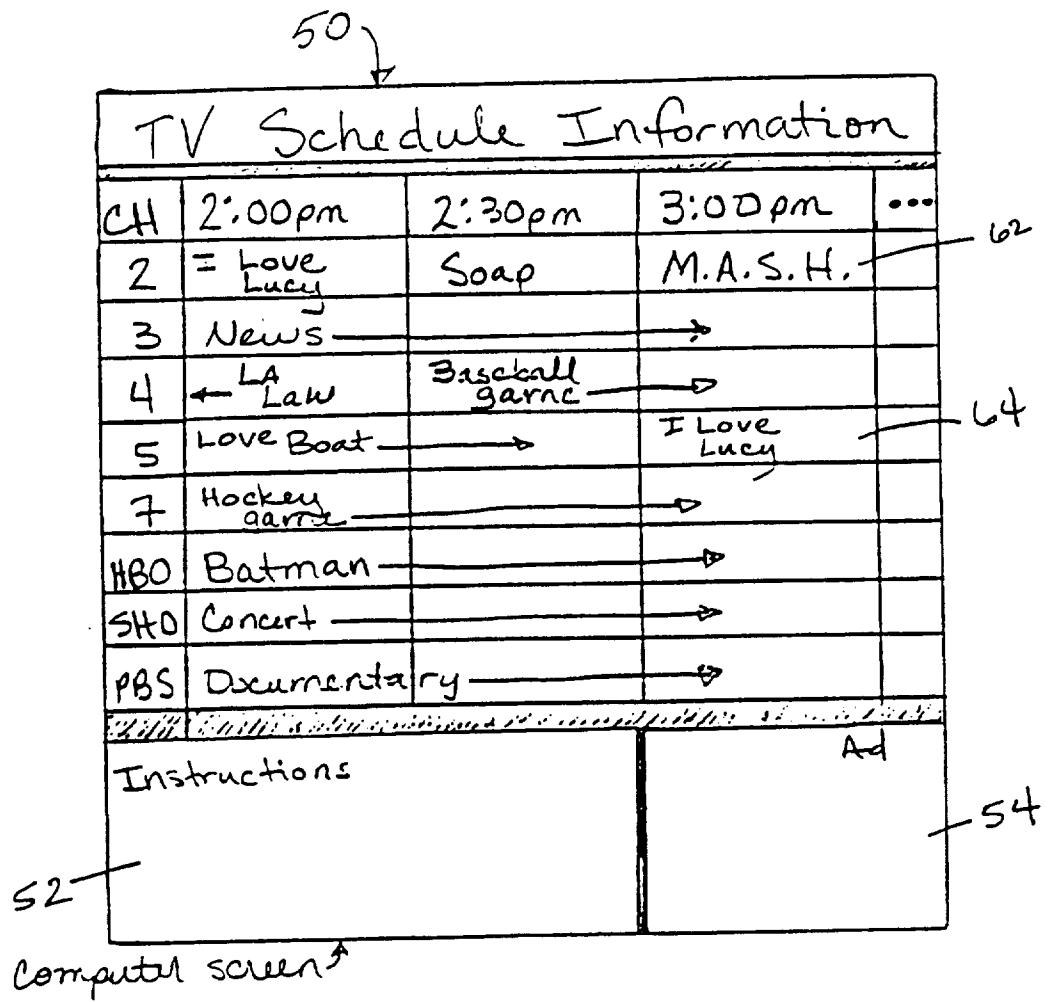 50
TV Schedule Information
CH 2:00pm 2:30pm 3:00pm ...
62
2 I Love Lucy Soap M.A.S.H.
3 News
4 LA Law Baseball game
64
5 Love Boat I Love Lucy
7 Hockey game
HBO Batman
SHO Concert
PBS Documentary
Ad
Instructions
54
52
Computer screen